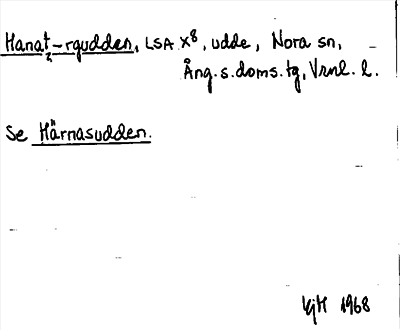 Hanat-rgudden, LSA X8, udde, Nora sn,
Ång.s.doms.tg, Vrnl. l.
Se Härnasudden.
1968